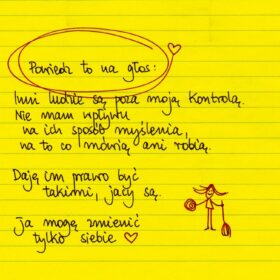 Powiedz to na głos:
Inni ludzie są poza moją kontrolą.
Nie mam wpływu
na ich sposób myślenia,
na to co mówią ani robią.
Daję im prawo być
takimi, jacy są.
Ja mogę zmienić
tylko siebie